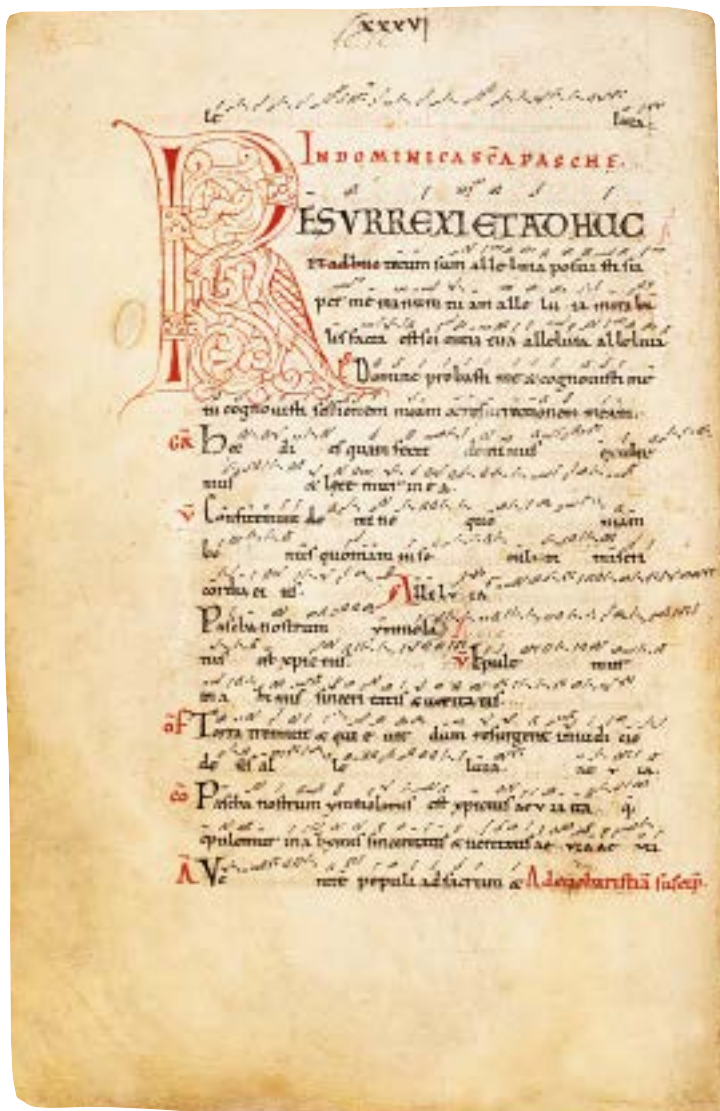 XXXVI
le luia.
IN DOMINICA SCA PASCHE.
RESURREXI ET ADHUC
et adhuc tecum sum alleluia posuisti su
per me manum tu am alle lu ia mirabi
lis facta est sci entia tua alleluia alleluia
Domine probasti me & cognovisti me
tu cognovisti sessionem meam & resurrectionem meam.
GR Hec di es quam fecit dominus exulte
mus & lete mur in e a.
V Confitemini do mi no quo niam
bo nus quoniam in se culum miseri
cordia ei us. Allelu ia
Pascha nostrum ymmola
tus est xpic tus. V Epule mur
in a simis sinceri tatis & veritatis.
OF Terra tremuit & qui e vit dum resurgeret in iudi cio
de us al le luia.
CO Pascha nostrum ymmolatus est xpictus ae v ia ita q;
epulemur in a simis sinceritatis & veritatis ae v ia ae v ia
A Ve nite populi ad sacrum & Ad eucharistiã suscip.